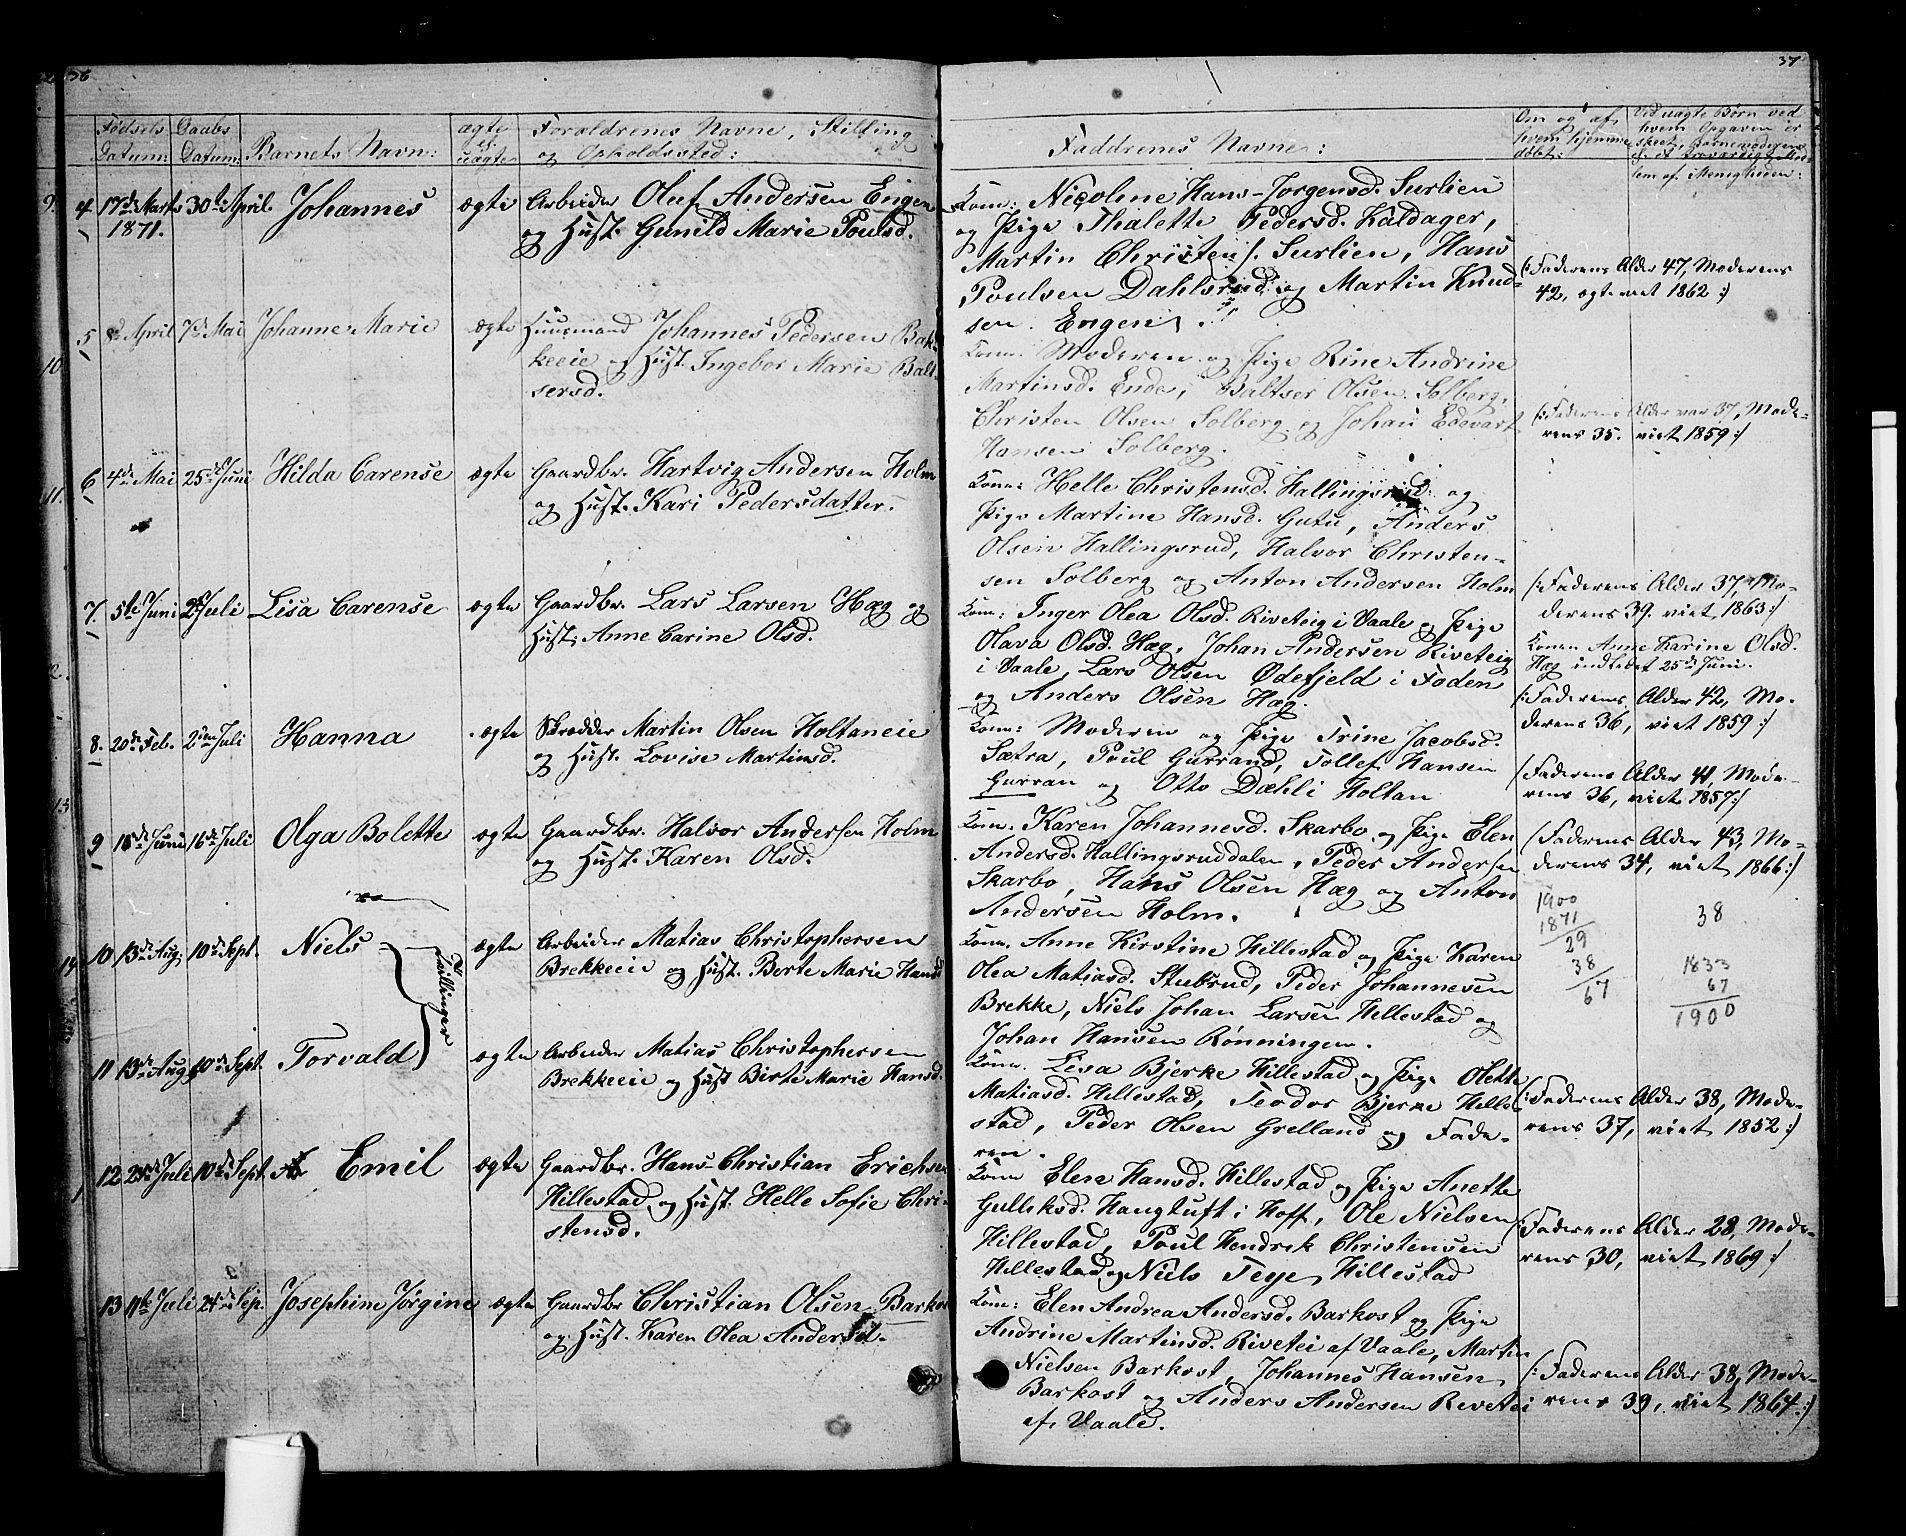 36
Fødsels Daabs Barnets Navn: ægte Forældrenes Navne, Stilling
Datum: Datum: uægte og Opholdssted:
4 17de Marts 30te April. Johannes ægte Arbeider Oluf Andersen Engen
1871. og Hust. Gunild Marie Poulsd.
5 April 7de Mai Johanne Marie ægte Huusmand Johannes Pedersen Bak-
keeie og Hust. Ingebor Marie Balt-
sersd.
6 4de Mai 25de Juni Hilda Carense ægte Gaardbr. Hartvig Andersen Holm
og Hust. Kari Pedersdatter.
7. 5te Juni Juli Lisa Carense ægte Gaardbr. Lars Larsen Hæg og
Hust. Anne Carine Olsd.
8. 20de Feb. 2den Juli Hanna ægte Skrædder Martin Olsen Holtaneie
og Hust. Lovise Martinsd.
9 18de Juni 16de Juli Olga Bolette ægte Gaardbr. Halvor Andersen Holm
og Hust. Karen Olsd.
10 13de Aug. 10de Sept. Niels ægte Arbeider Matias Christophersen
Brekkeeie og Hust. Berte Marie Hansd
Tvillinger
11 13de Aug. 10de Sept. Torvald ægte Arbeider Matias Christophersen
Brekkeeie og Hust Birte Marie Hansd.
12 Juli 10de Sept. Emil ægte Gaardbr. Hans Christian Erichsen
Hillestad og Hust. Helle Sofie Chri-
stensd.
13 11te Juli 24de Sep. Josephine Jørgine ægte Gaardbr Christian Olsen Barkost
og Hust. Karen Olea Andersd.
37
Faddrenes Navne: Om og af Ved uægte Børn ved
hvem hjemme hvem Opgaven er
døbt: skeet, Barnemoderens
lem af Menigheden:
Kone: Nicoline Hans-Jørgensd. Surlien
og Pige Thalette Pedersd. Kaldager,
Martin Christens. Surlien, Hans
Poulsen Dahlsrud og Martin Knud-
sen Engen.
(: Faderens Alder 47, Moderens
42, ægteviet 1862 :)
Kone. Moderen og Pige Rine Andrine
Martinsd. Ende, Baltser Olsen Solberg,
Christen Olsen Solberg og Johan Edevart
Hansen Solberg.
(: Faderens Alder var 37, Mode-
rens 35. viet 1859 :)
Kone: Helle Christensd. Hallingsrud og
Pige Martine Hansd. Gutu, Anders
Olsen Hallingsrud, Halvor Christen-
sen Solberg og Anton Andersen Holm
(: Faderens Alder 37, Mo-
derens 39. viet 1863 :)
Kone: Inger Olea Olsd. Riveteig i Vaale og Pige
Olava Olsd. Hæg, Johan Andersen Riveteig
i Vaale, Lars Olsen Ødefjeld i Foden
og Anders Olsen Hæg.
Konen Anne Karine Olsd.
Hæg indledet 25de Juni.
(: Faderens Alder 42, Mo-
derens 36, viet 1859 :)
Kone: Moderen og Pige Trine Jacobsd.
Sætra, Poul Gurrand, Tollef Hansen
Gurran og Otto Dæhli Holtan
(Faderens Alder 41, Mode-
rens 36, viet 1857 :)
Kone. Karen Johannesd. Skarbo og Pige Elen
Andersd. Hallingsruddalen, Peder Andersen
Skarbo, Hans Olsen Hæg og Anton
Andersen Holm.
(Faderens Alder 43, Mo-
derens 34, viet 1866 :)
Kone. Anne Kirstine Hillestad og Pige Karen
Olea Matiasd. Stubrud, Peder Johannesen
Brekke, Niels Johan Larsen Hillestad og
Johan Hansen Rønningen.
1900
1871
29
38
67
38
1833
67
1900
Kone. Lisa Bjerke Hillestad og Pige Olette
Matiasd. Hillestad, Teodor Bjerke Hille-
stad, Peder Olsen Grelland og Fade-
ren.
(: Faderens Alder 38, Mode-
rens 37, viet 1852 :)
Kone Elen Hansd. Hillestad og Pige Anette
Gulliksd. Haugtuft i Hoff, Ole Nielsen
Hillestad, Poul Hendrik Christensen
Hillestad og Niels Teye Hillestad
(: Faderens Alder 28, Mode-
rens 30, viet 1869 :)
Kone: Elen Andrea Andersd. Barkost og Pige
Andrine Martinsd. Rivetei af Vaale, Martin
Nielsen Barkost, Johannes Hansen
Barkost og Anders Andersen Rivetei
af Vaale.
(: Faderens Alder 38, Mode-
rens 39, viet 1864 :)